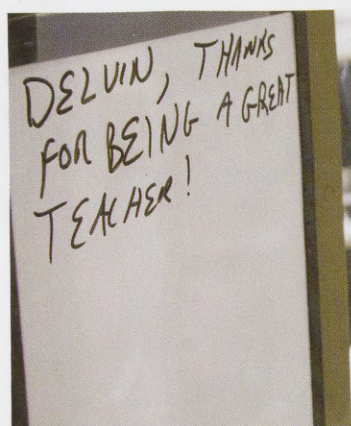 DELVIN, THANKS
FOR BEING A GREAT
TEACHER!